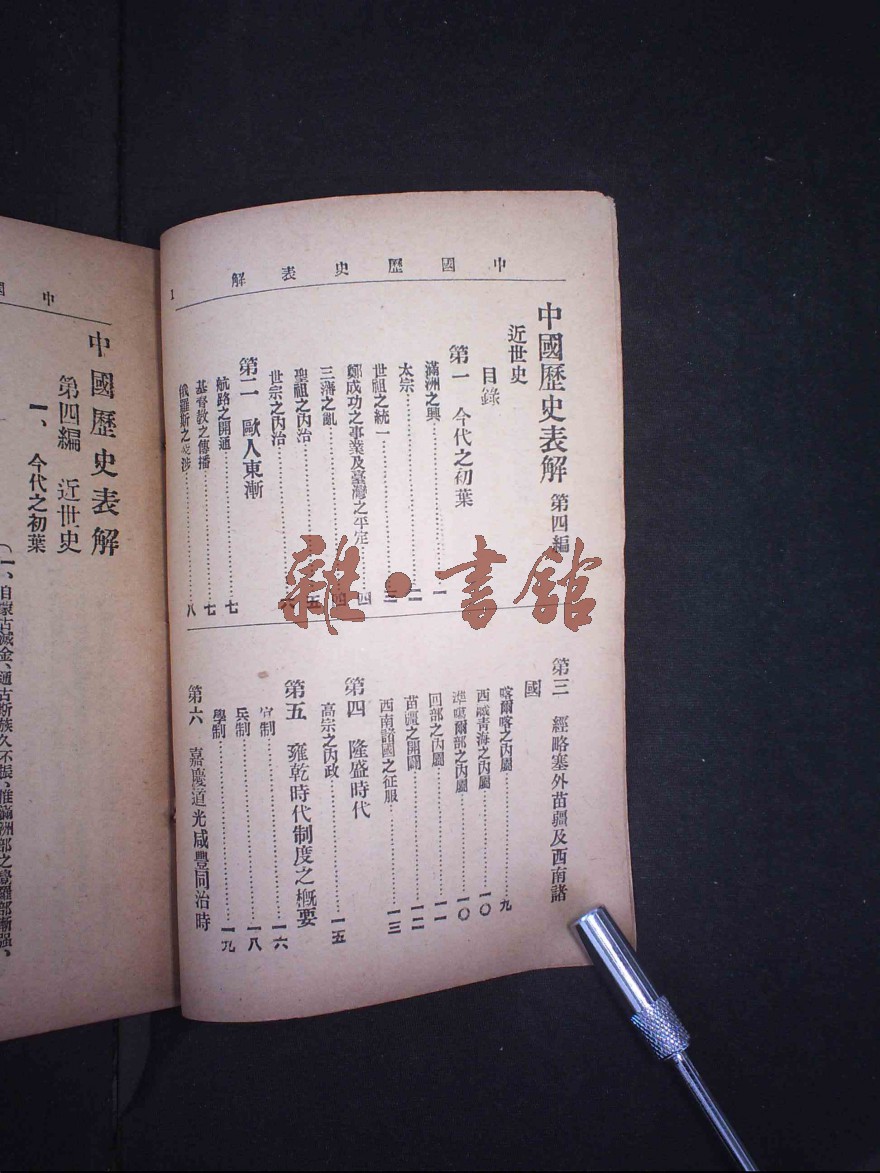 中國歷史表解 1
中國歷史表解 第四編
近世史
目錄
第一 今代之初葉
滿洲之興……一
太宗……二
世祖之統一……三
鄭成功之事業及臺灣之平定……四
三藩之亂……四
聖祖之內治……五
世宗之內治……六
第二 歐人東漸
航路之開通……七
基督教之傳播……七
俄羅斯之交涉……八
第三 經略塞外苗疆及西南諸
國
喀爾喀之內屬……九
西藏青海之內屬……一〇
準噶爾部之內屬……一〇
回部之內屬……一一
苗疆之開闢……一二
西南諸國之征服……一三
第四 隆盛時代
高宗之內政……一五
第五 雍乾時代制度之概要
官制……一六
兵制……一八
學制……一九
第六 嘉慶道光咸豐同治時
中國
中國歷史表解
第四編 近世史
一、今代之初葉
(一、自蒙古滅金、通古斯族久不振、惟滿洲部之愛羅部漸强、
雜·書館